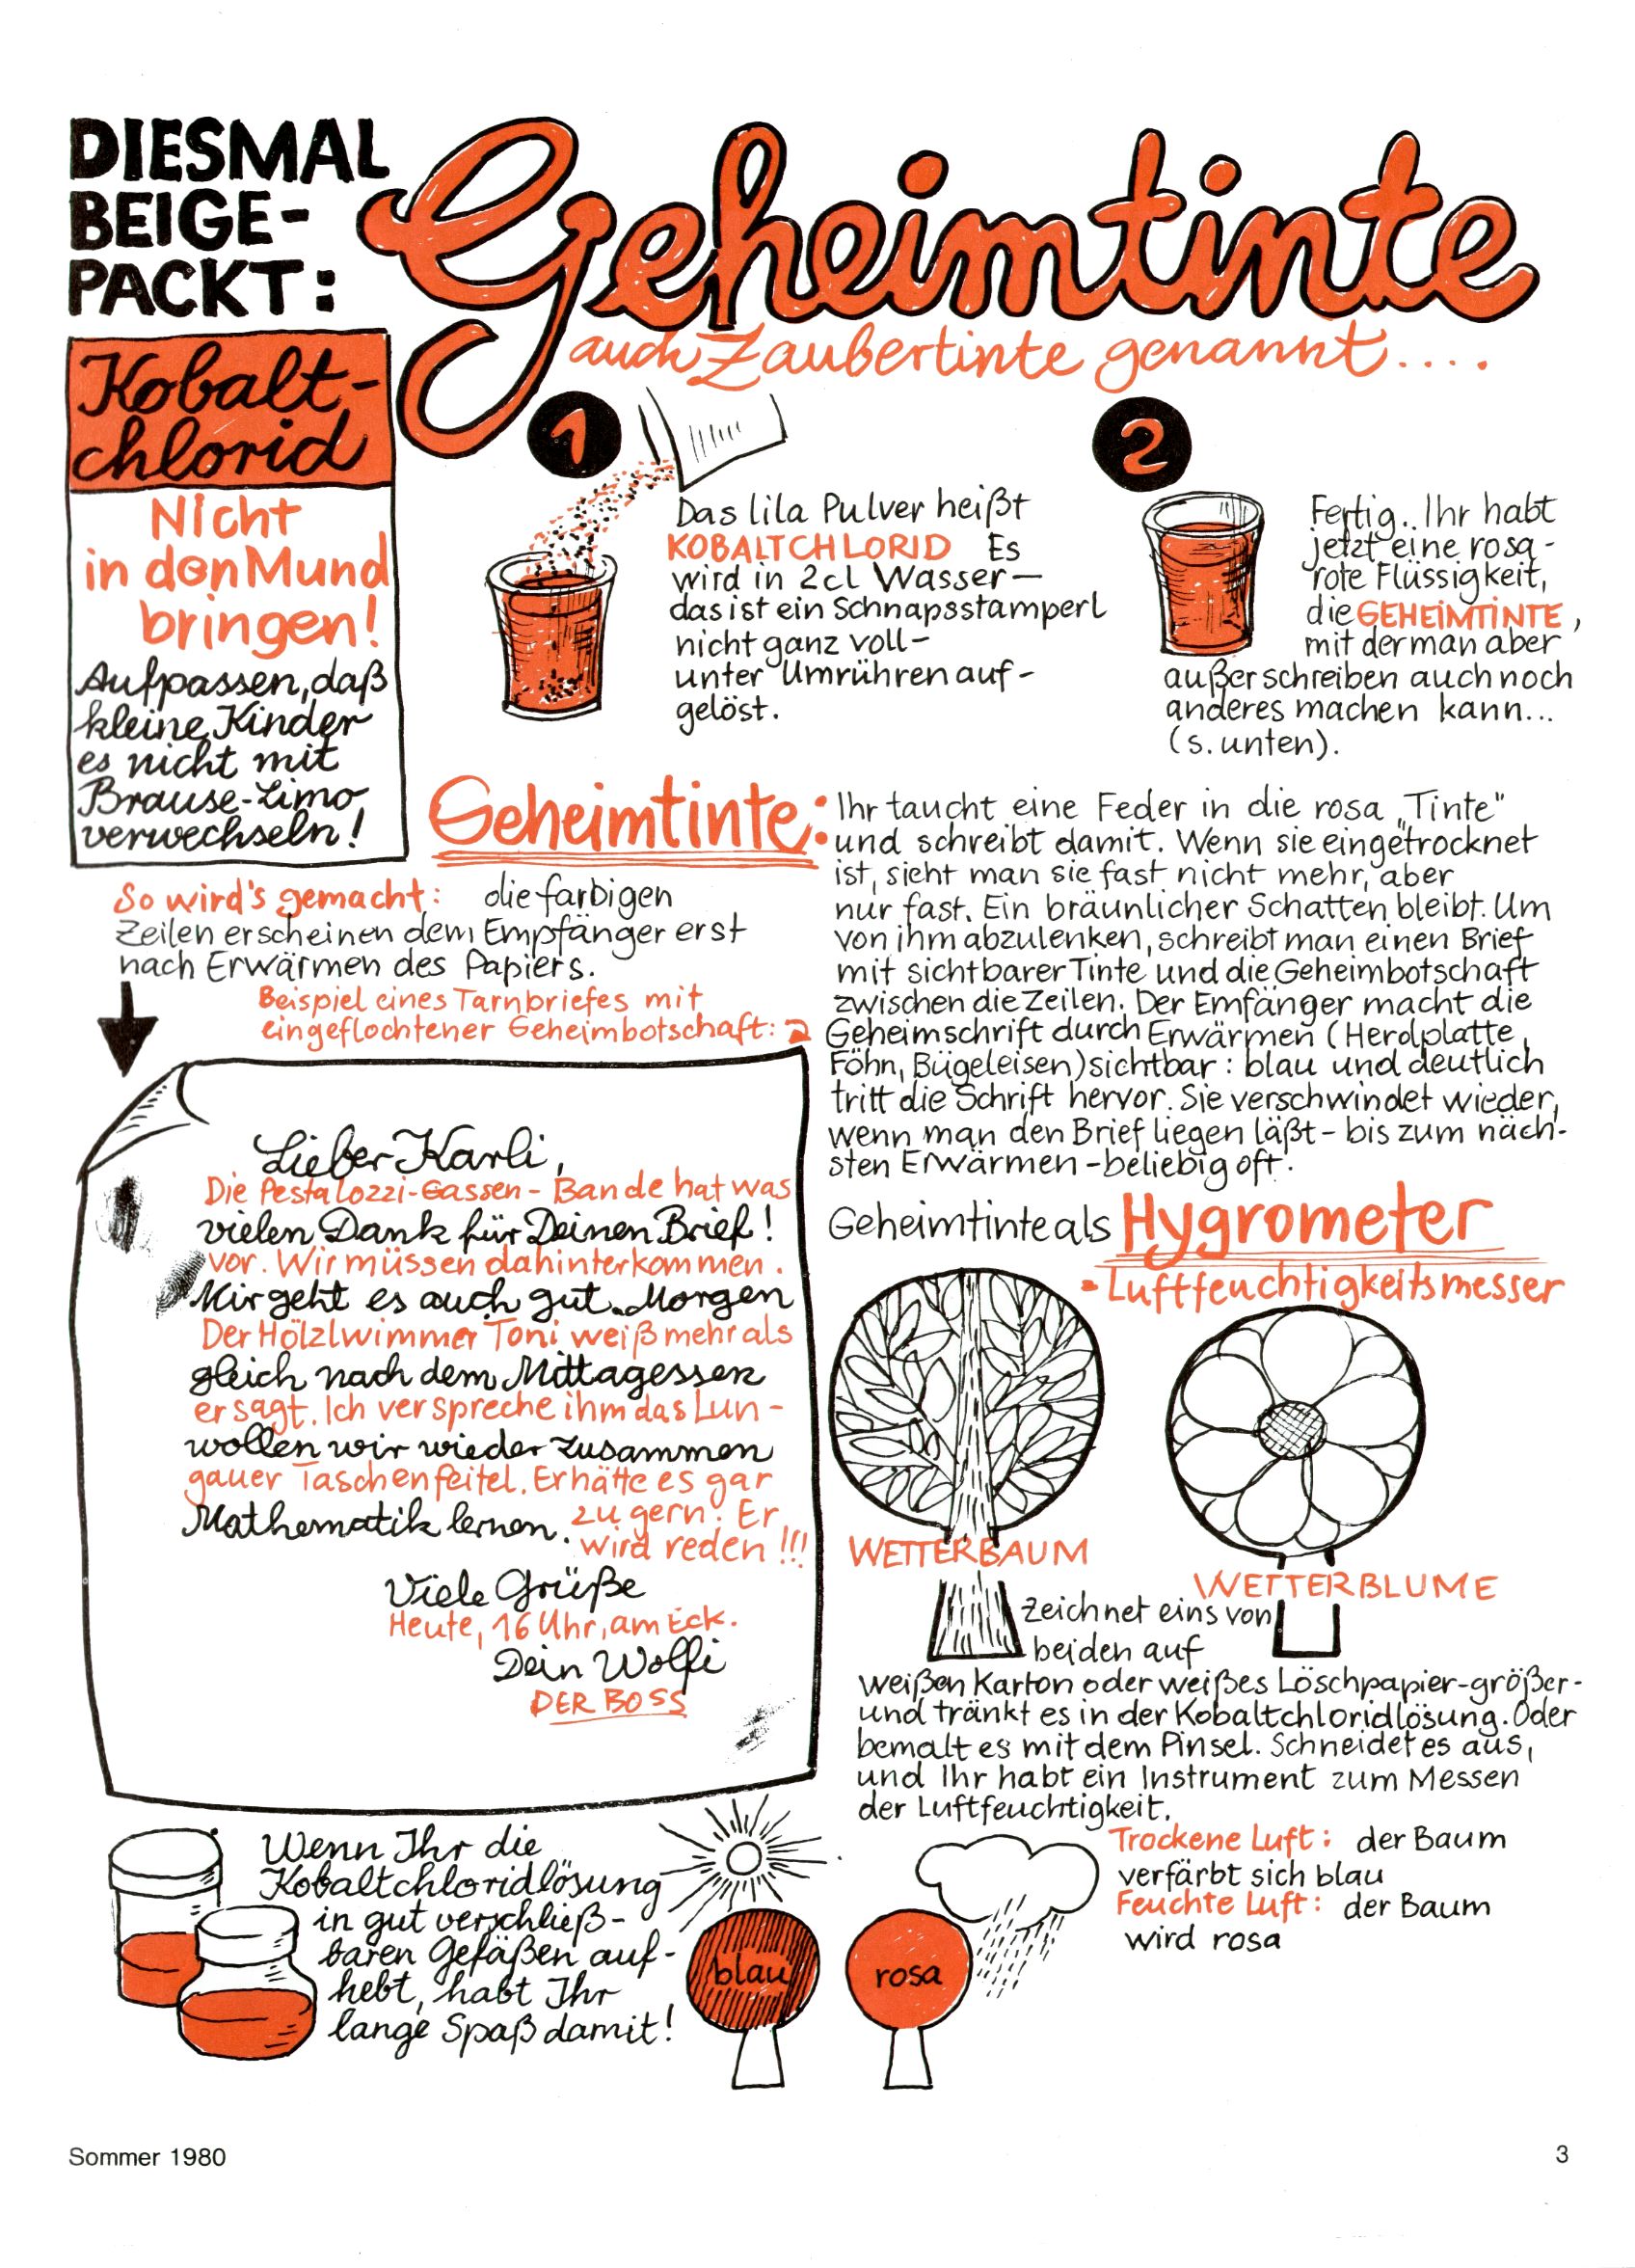 DIESMAL
BEIGE-
PACKT:
Geheimtinte
auch Zaubertinte genannt....
Kobalt-
chlorid
Nicht
in den Mund
bringen!
Aufpassen, daß
kleine Kinder
es nicht mit
Brause-Limo
verwechseln!
1
Das lila Pulver heißt
KOBALTCHLORID Es
wird in 2cl Wasser—
das ist ein Schnapsstamperl
nicht ganz voll—
unter Umrühren auf-
gelöst.
2
Fertig.. Ihr habt
jetzt eine rosa-
rote Flüssigkeit,
die GEHEIMTINTE,
mit der man aber
außer schreiben auch noch
anderes machen kann...
(s. unten).
Geheimtinte:
Ihr taucht eine Feder in die rosa „Tinte"
und schreibt damit. Wenn sie eingetrocknet
ist, sieht man sie fast nicht mehr, aber
nur fast. Ein bräunlicher Schatten bleibt. Um
von ihm abzulenken, schreibt man einen Brief
mit sichtbarer Tinte und die Geheimbotschaft
zwischen die Zeilen. Der Emfänger macht die
Geheimschrift durch Erwärmen (Herdplatte,
Föhn, Bügeleisen) sichtbar: blau und deutlich
tritt die Schrift hervor. Sie verschwindet wieder,
wenn man den Brief liegen läßt - bis zum näch-
sten Erwärmen - beliebig oft.
So wird's gemacht: die farbigen
Zeilen erscheinen dem Empfänger erst
nach Erwärmen des Papiers.
Beispiel eines Tarnbriefes mit
eingeflochtener Geheimbotschaft:
Lieber Karli,
Die Pestalozzi-Gassen-Bande hat was
vielen Dank für Deinen Brief!
vor. Wir müssen dahinterkommen.
Mir geht es auch gut. Morgen
Der Hölzlwimmer Toni weiß mehr als
gleich nach dem Mittagessen
er sagt. Ich verspreche ihm das Lun-
wollen wir wieder zusammen
gauer Taschenfeitel. Er hätte es gar
Mathematik lernen.
zu gern! Er
wird reden!!!
Viele Grüße
Heute, 16 Uhr, am Eck.
Dein Wolfi
DER BOSS
Geheimtinte als Hygrometer
- Luftfeuchtigkeitsmesser
WETTERBAUM
WETTERBLUME
Zeichnet eins von
beiden auf
weißen Karton oder weißes Löschpapier-größer-
und tränkt es in der Kobaltchloridlösung. Oder
bemalt es mit dem Pinsel. Schneidet es aus,
und Ihr habt ein Instrument zum Messen
der Luftfeuchtigkeit.
Trockene Luft: der Baum
verfärbt sich blau
Feuchte Luft: der Baum
wird rosa
Wenn Ihr die
Kobaltchloridlösung
in gut verschließ-
baren Gefäßen auf-
hebt, habt Ihr
lange Spaß damit!
blau
rosa
Sommer 1980
3